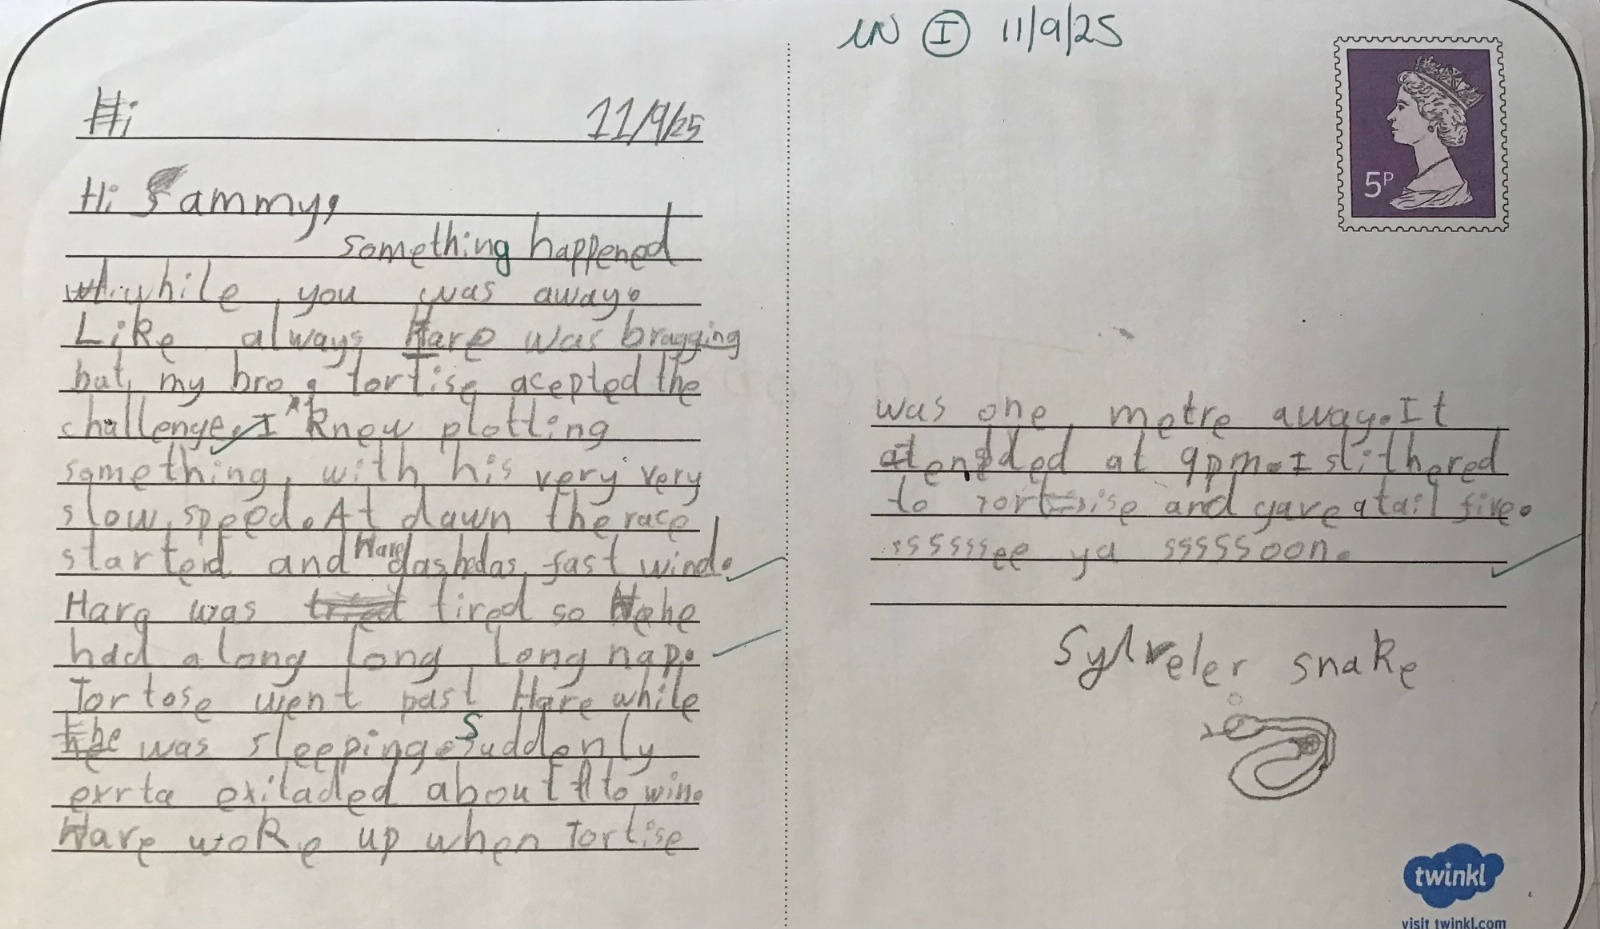 Hi 11/9/25
Hi Sammy,
something happened
while you was away.
Like always Hare was bragging
but my bro, tortise acepted the
challenge. I knew plotting
something with his very very
slow speed. At dawn the race
started and Hare dashed as fast wind.
Hare was tired so he
had a long long long nap.
Tortose went past Hare while
he was sleeping. Suddenly
exrta exitaded about to win.
Hare woke up when Tortise
IN I 11/9/25
5P
was one metre away. It
ended at 9pm. I slithered
to Tortise and gave a tail five.
sssssssee ya sssssoon.
Sylveler snake
twinkl
visit twinkl.com